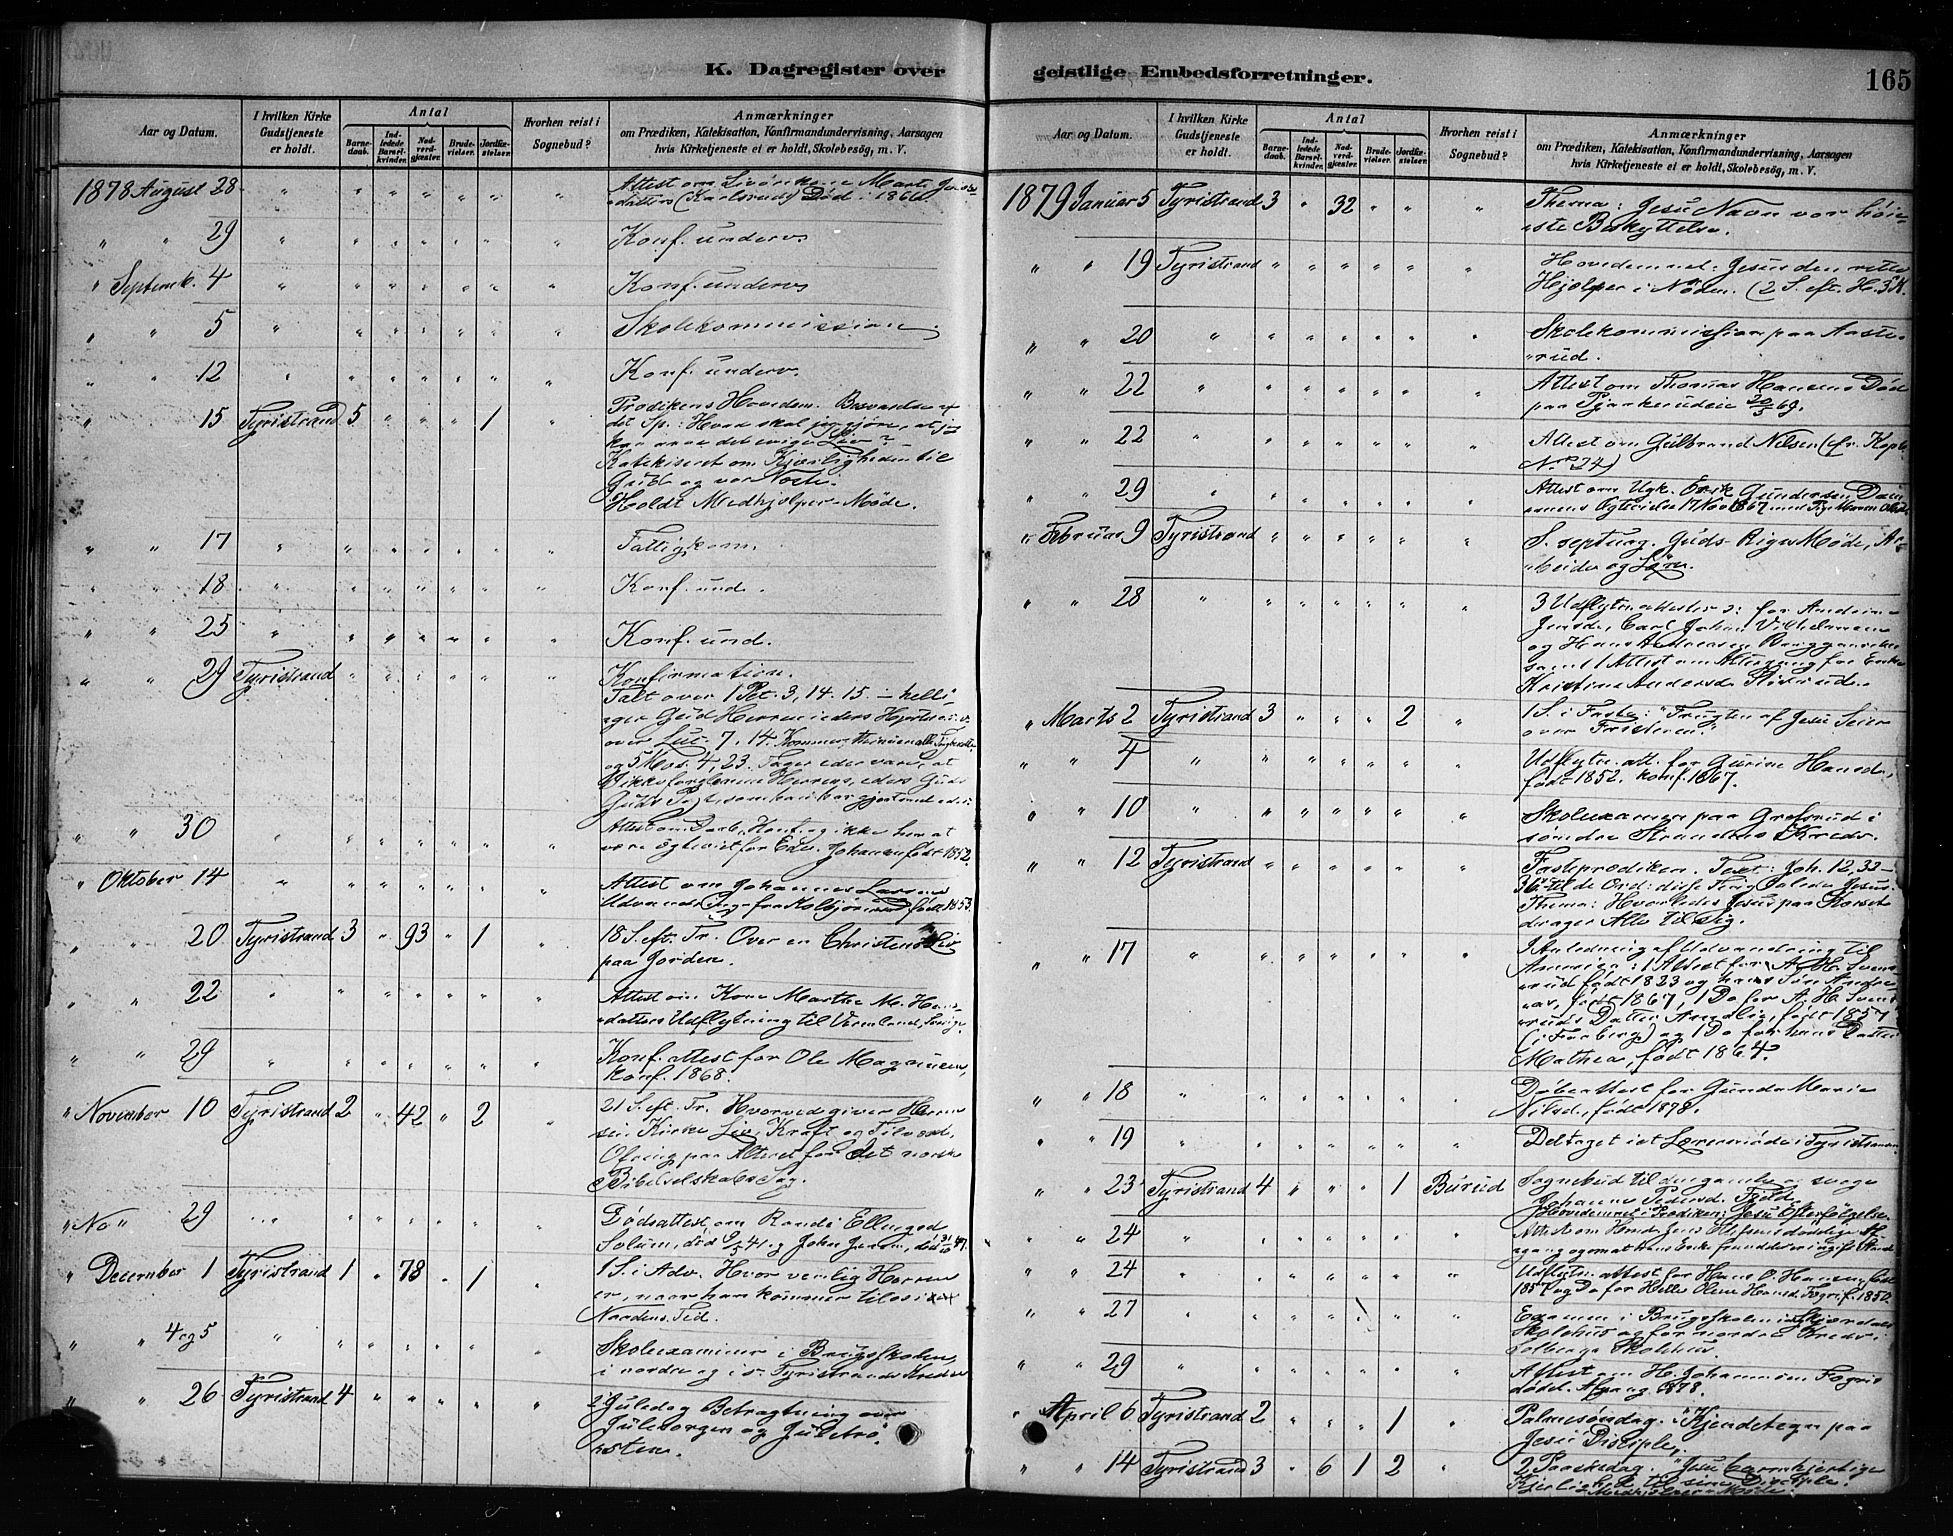 K. Dagregister over geistlige Embedsforretninger.
165
Aar og Datum.
I hvilken Kirke Gudstjeneste er holdt.
Antal
Barnedaab.
Indledede Barselkvinder.
Nadverdgjæster.
Brudevielser.
Jordfæstelser.
Hvorhen reist i Sognebud?
Anmærkninger
om Prædiken, Katekisation, Konfirmandundervisning, Aarsagen
hvis Kirketjeneste ei er holdt, Skolebesøg, m. V.
1878 August 28 " " " " " " " Attest om
datters (Karlsrud) Død i 1866.
" " 29 " " " " " " " Konf. underv.
" Septemb. 4 " " " " " " " Konf. underv.
" " 5 " " " " " " " Skolekommission.
" " 12 " " " " " " " Konf. underv.
" " 15 Tyristrand 5 " " " 1 Prædikens Hovedem. Besvarelse af
det Sp.: Hvad skal jeg gjøre, at jeg
kan arve det evige Liv?
Katekiseret om Kjærligheden til
Gud og vor Næste.
Holdt Medhjælper-Møde.
" " 17 " " " " " " " Fattigkom.
" " 18 " " " " " " " Konf. und.
" " 25 " " " " " " " Konf. und.
" " 29 Tyristrand " " " " " Konfirmation.
Talt over 1 Pet. 3, 14. 15. – helli-
ger Gud Herren i eders Hjerter
over Luc. 7, 14.
og 5 Mos. 4, 23. Tager eder vare, at
I ikke forglemme Herrens, eders Guds
Guds Pagt, som han har gjort med eder
" " 30 " " " " " " " Attest om Daab, Konf. og ikke her at
være ægteviet for Edv. Johansen født 1852.
" Oktober 14 " " " " " " " Attest om Johannes Larsens
født 1853.
" " 20 Tyristrand 3 " 93 " 1 " 18 S. eft. Tr. Over en Christens Liv
paa Jorden.
" " 22 " " " " " " " Attest om Kone Marthe M. Hans-
datters Udflytning til Vermland, Sverige
" " 29 " " " " " " " Konf. attest for Ole Magnusen,
konf. 1868.
" November 10 Tyristrand 2 " 42 " 2 " 21 S. eft. Tr. Hvorved giver Herren
sin Kirke Liv, Kraft og Tilvæxt,
Ofring paa Alteret for det norske
Bibelselskabs Sag.
" No " 29 " " " " " " Dødsattest om Randi Ellingsd.
Solum, død 9/5 41 og John Jensen, død 31/10 47.
" December 1 Tyristrand 1 " 78 " 1 " 1 S. i Adv. Hvor venlig Herren
er, naar han kommer til os i
Naadens Tid.
" " 4 og 5 " " " " " " " Skoleexaminer i Brugsskolen,
i nordre og i s. Tyristrands Kredse
" " 26 Tyristrand 4 " " " " " 2 Juledag Betragtning over
Julesorgen og Juletrø-
sten.
Aar og Datum.
I hvilken Kirke Gudstjeneste er holdt.
Antal
Barnedaab.
Indledede Barselkvinder.
Nadverdgjæster.
Brudevielser.
Jordfæstelser.
Hvorhen reist i Sognebud?
Anmærkninger
om Prædiken, Katekisation, Konfirmandundervisning, Aarsagen
hvis Kirketjeneste ei er holdt, Skolebesøg, m. V.
1879 Januar 5 Tyristrand 3 " 32 " " " Thema: Jesu Navn vor høie-
ste Beskyttelse.
" " 19 Tyristrand " " " " " " Hovedemnet: Jesus den rette
Hjælper i Nøden. (2 S. eft. H. 3 K.
" " 20 " " " " " " " Skolekommission paa Aaste-
rud.
" " 22 " " " " " " " Attest om Thomas Hansens Død
paa 20/5 69.
" " 22 " " " " " " " Attest om Gulbrand Nilsen (fr. Kopib.
No 24)
" " 29 " " " " " " " Attest om Ugk. Erik Gundersen
Ægtevielse 17 Nov 1867 med
" Februar 9 Tyristrand " " " " " " S. septuag. Guds Riges Møie, Ar-
beide og Løn.
" " 28 " " " " " " " 3 Udflytn. attester: for Andrine
Jensd., Carl Johan Vilhelmsen
og Hans Andreasen
samt 1 Attest om Altergang for Enke
Kristine Andersd.
" Marts 2 Tyristrand 3 " " " 2 " 1 S. i Faste: "Frugten af Jesu Seier
over Fristeren."
" " 4 " " " " " " " Udflytn. att. for Gurine Hansd.,
født 1852. konf. 1867.
" " 10 " " " " " " " Skoleexamen paa Grøsrud i
søndre Strandens Kreds.
" " 12 Tyristrand " " " " " " Fasteprædiken. Text: Joh. 12, 32–
36 til de Ord: disse Ting talede Jesus.
Thema: Hvorledes Jesus paa Korset
drager Alle til Sig.
" " 17 " " " " " " " I Anledning af Udvandring til
Amerika: 1 Attest for A. H. Svens-
rud født 1823 og hans Søn
født 1867, 1 Do for A. H. Svens-
ruds Datter Amalie, født 1857
og 1 Do for hans Datter
Mathea, født 1864.
" " 18 " " " " " " " Døbeattest for Gunda Marie
Nilsd., født 1878.
" " 19 " " " " " " " Deltaget i et Lærermøde i Tyristranden
" " 23 Tyristrand 4 " " " 1 Burud Sognebud til den gamle og svage
Johannes Pedersd.
Hovedemnet i Prædiken: Jesu Efterfølgelse
" " 24 " " " " " " " Attest om
" " 24 " " " " " " " Udflytn. attest for Hans O. Hansen, født
1857 og Do for Helle Oline Hansd. f. 1850.
" " 27 " " " " " " " Examen i Brugsskolen i Skjærdalens
Skolehus og for nordre Kreds i
Solberg Skolehus.
" " 29 " " " " " " " Attest om H. Johannesen
dødel. Afgang 1878.
" April 6 Tyristrand 2 " " " 1 " Palmesøndag. "Kjendetegn paa
Jesu Disciple."
" " 14 Tyristrand 3 " 6 1 2 " 2 Paaskedag. "Jesu barmhjertige
Kjerlighed til sine Disciple.
Medhjælper-Møde.